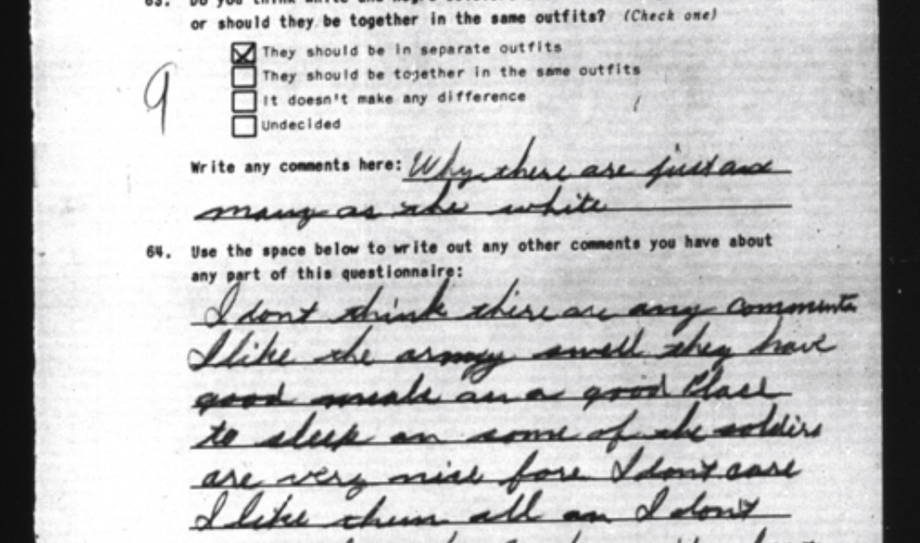 or should they be together in the same outfits? (Check one)
They should be in separate outfits
They should be together in the same outfits
It doesn't make any difference
Undecided
9
Write any comments here: Why there are just as
many as the white
64. Use the space below to write out any other comments you have about
any part of this questionnaire:
I dont think there are any comments
I like the army swell they have
good meals an a good Place
to sleep an some of the soldirs
are very nice fore I dont care
I like them all an I don't